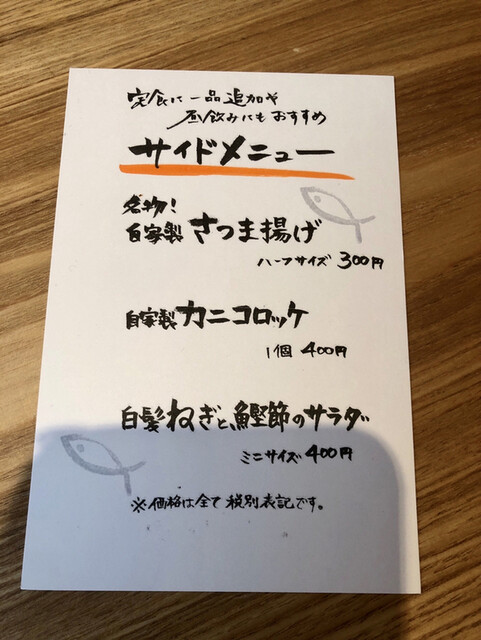 定食に一品追加や
昼飲みにもおすすめ
サイドメニュー
名物!
自家製 さつま揚げ
ハーフサイズ 300円
自家製 カニコロッケ
1個 400円
白髪ねぎと、鰹節のサラダ
ミニサイズ 400円
※価格は全て税別表記です。